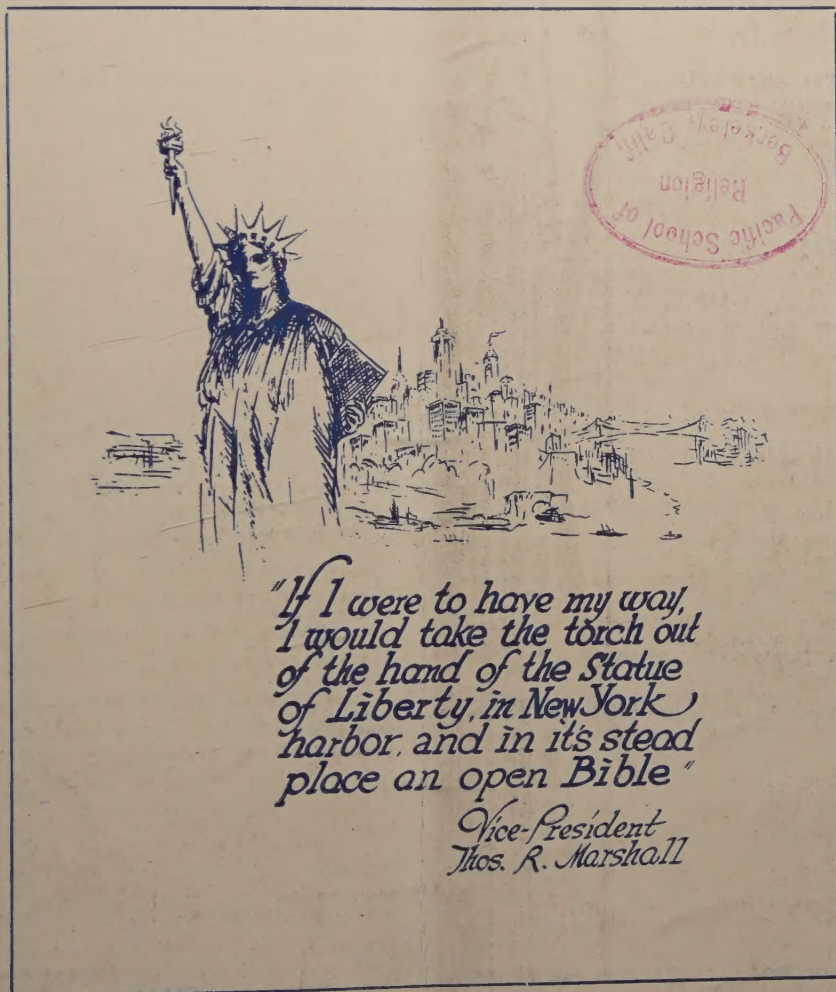 Pacific School of
Religion
Berkeley, Calif.
"If I were to have my way,
I would take the torch out
of the hand of the Statue
of Liberty, in New York
harbor, and in it's stead
place an open Bible"
Vice-President
Thos. R. Marshall